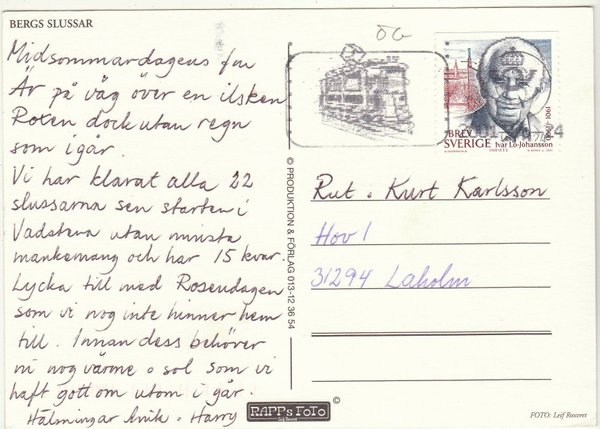 BERGS SLUSSAR
Midsommardagens fm
Är på väg över en ilsken
Roxen dock utan regn
som igår.
Vi har klarat alla 22
slussarna sen starten i
Vadstena utan minsta
mankemang och har 15 kvar.
Lycka till med Rosendagen
som vi nog inte hinner hem
till. Innan dess behöver
ni nog värme o sol som vi
haft gott om utom i går.
Hälsningar Anik o Harry
© PRODUKTION & FÖRLAG 013-12 36 54
ÖG
BREV
SVERIGE
Ivar Lo-Johansson
1901-1990
Rut o Kurt Karlsson
Hov 1
31294 Laholm
RAPPs FoTo
©
FOTO: Leif Rosvret